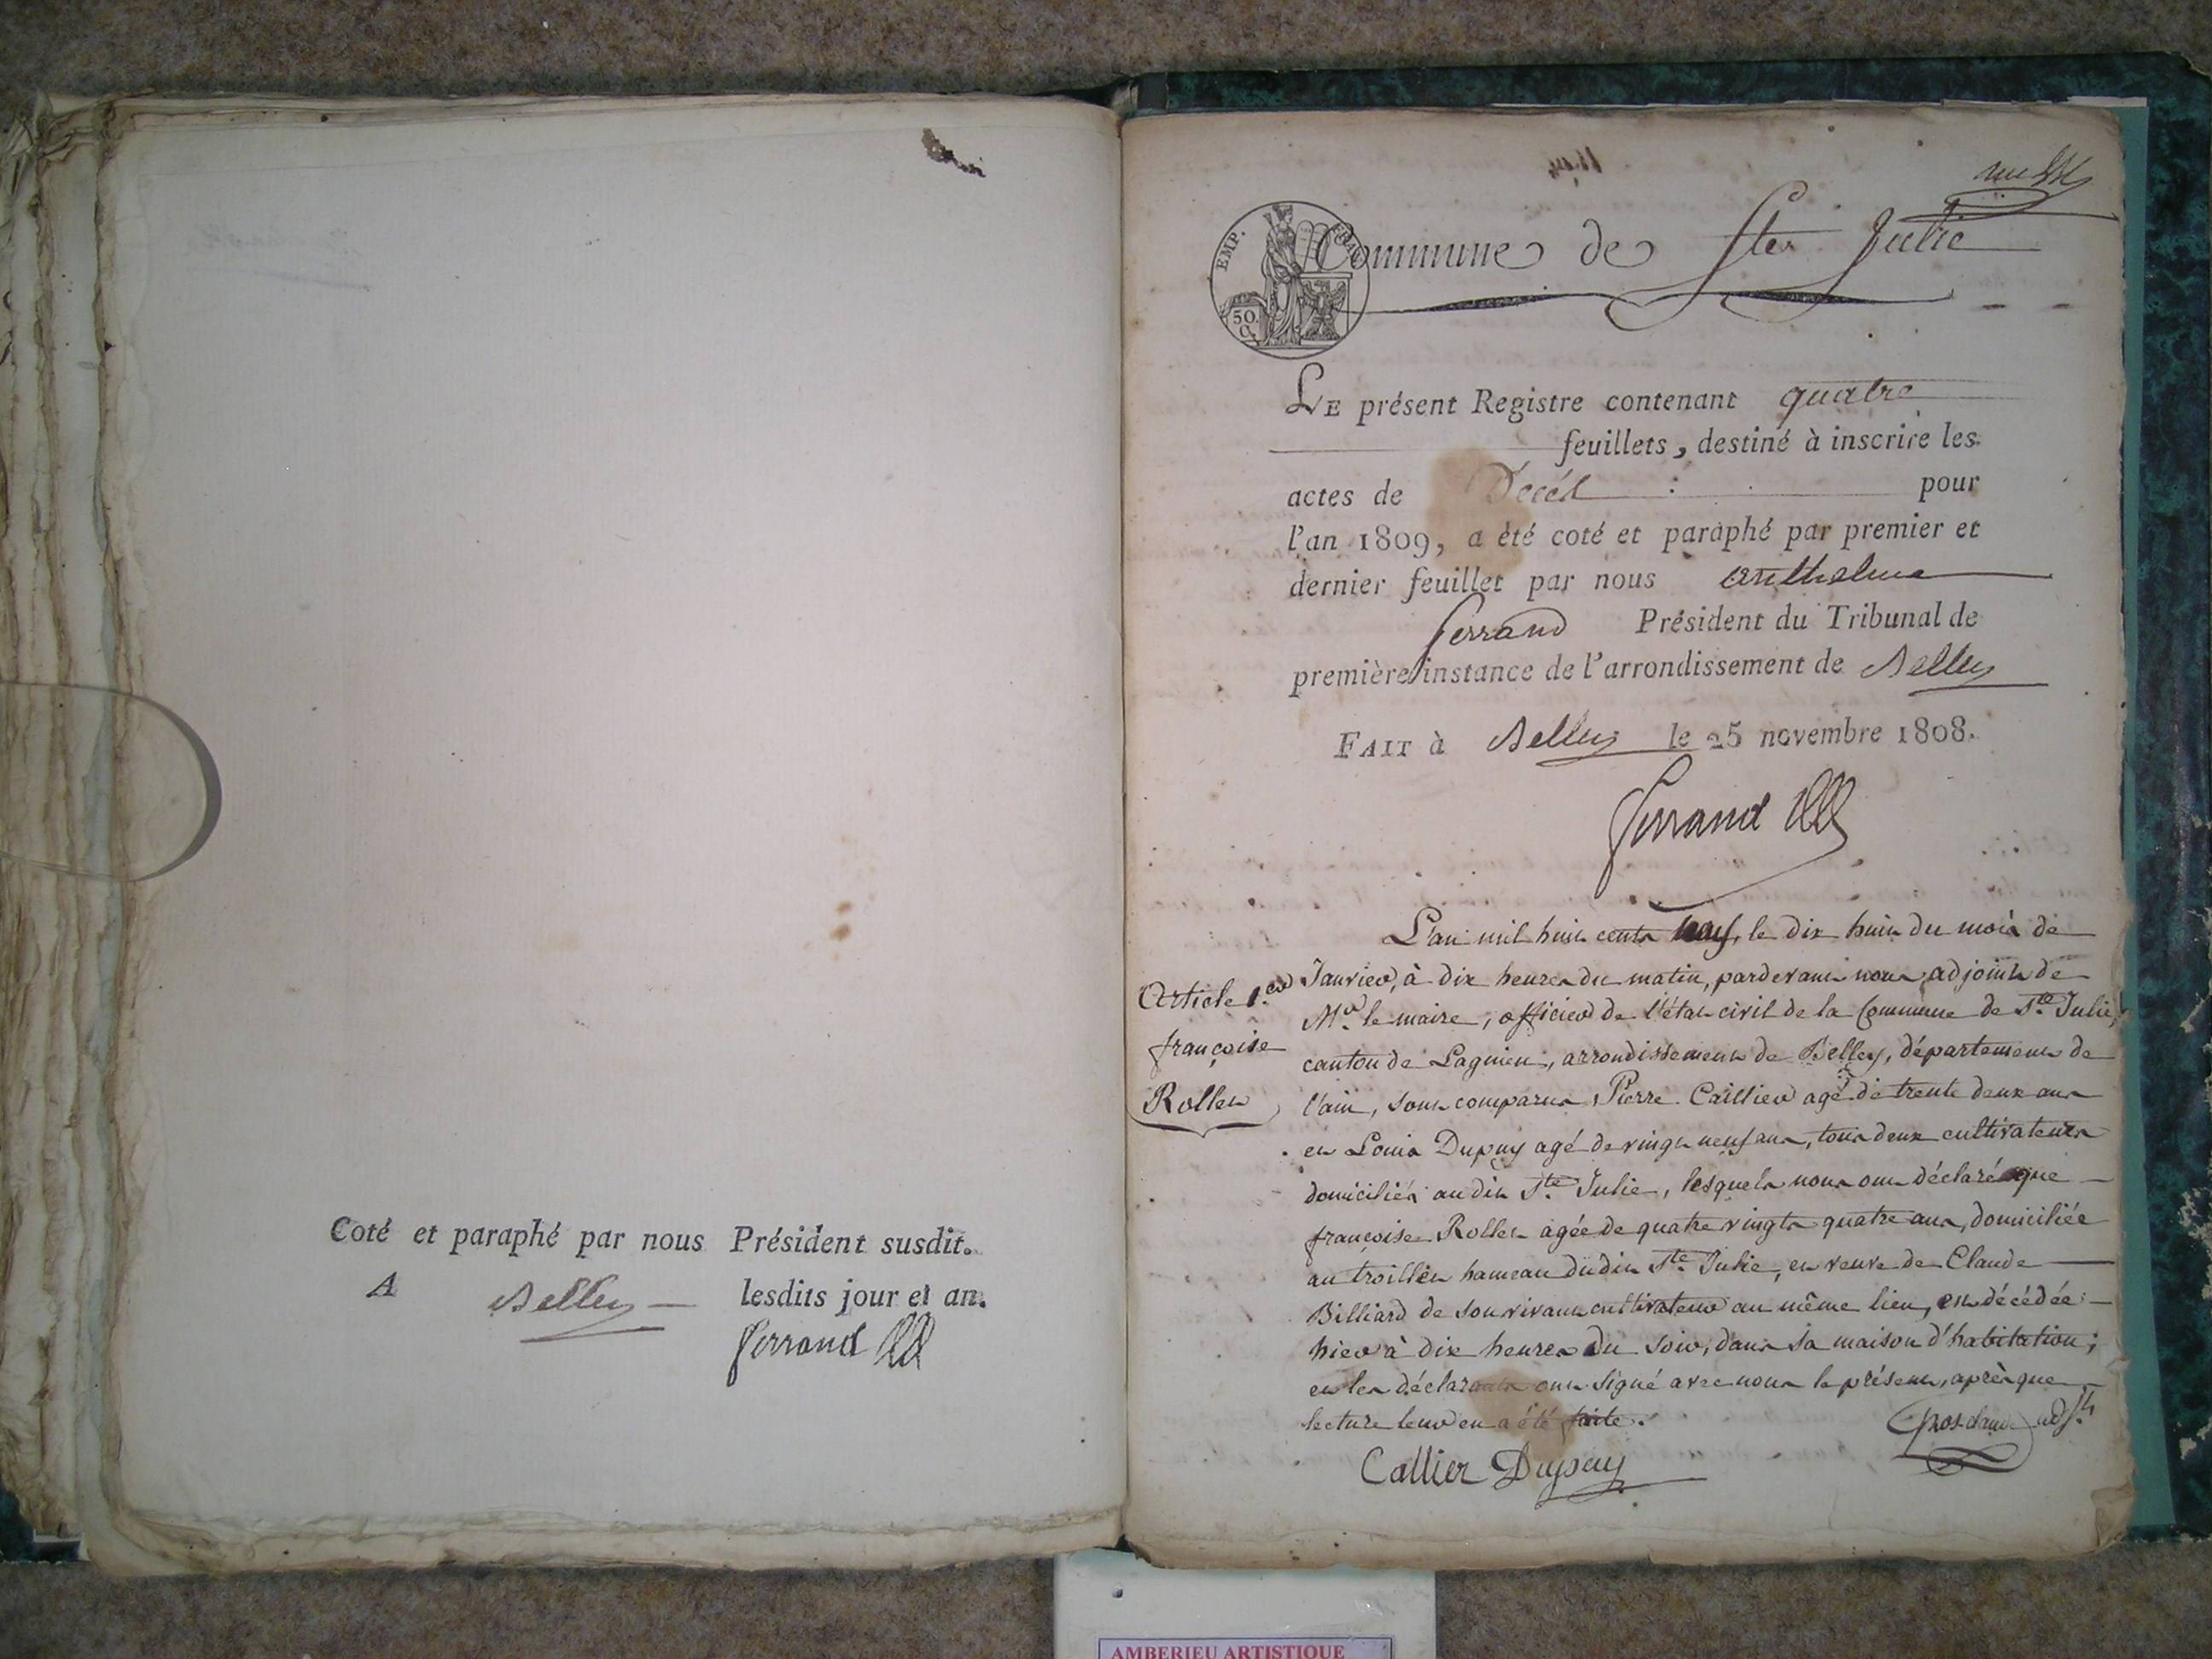 Coté et paraphé par nous Président susdit.
A Belley lesdits jour et an.
Ferrand
EMP. FRAN
50.
C.
Commune de Ste Julie
LE présent Registre contenant quatre
feuillets, destiné à inscrire les
actes de Décès pour
l'an 1809, a été coté et paraphé par premier et
dernier feuillet par nous anthelme
ferrand Président du Tribunal de
première instance de l'arrondissement de Belley
FAIT à Belley le 25 novembre 1808.
Ferrand
Article 1.er
françoise
Rollet
L'an mil huit cents neuf, le dix huit du mois de
Janvier, à dix heures du matin, pardevant nous adjoint de
Mr. le maire, officier de l'état civil de la Commune de Ste. Julie,
canton de Lagnieu, arrondissement de Belley, département de
l'ain, sont comparus Pierre Caillier agé de trente deux ans
et Louis Dupuy agé de vingt neuf ans, tous deux cultivateurs
domiciliés au dit Ste. Julie, lesquels nous ont déclaré que
françoise Rollet agée de quatre vingts quatre ans, domiciliée
au troillet hameau dudit Ste. Julie, et veuve de Claude
Billiard de son vivant cultivateur au même lieu, est décédée
hier à dix heures du soir, dans sa maison d'habitation;
et les déclarants ont signé avec nous le présent, après que
lecture leur en a été faite.
adjt.
Callier Dupuy
AMBERIEU ARTISTIQUE